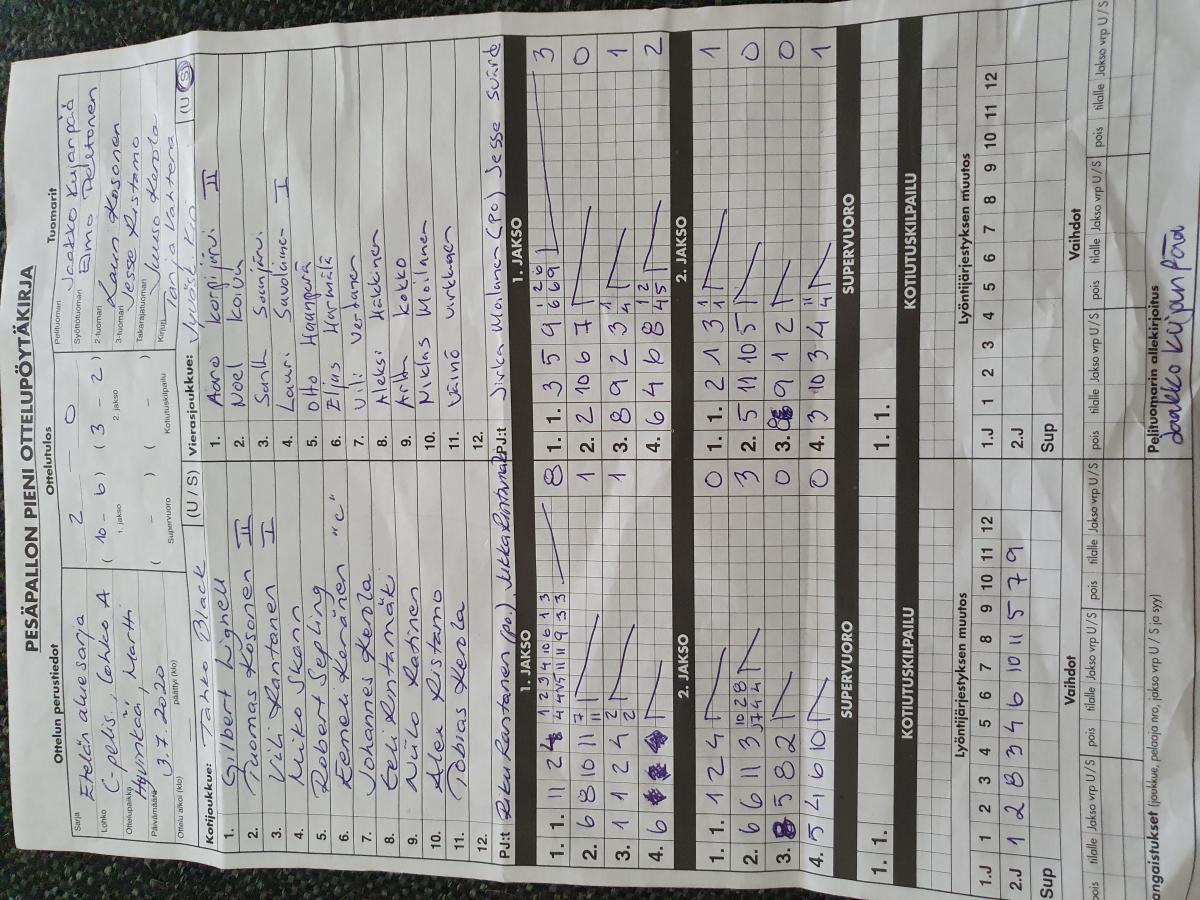 PESÄPALLON PIENI OTTELUPÖYTÄKIRJA
Ottelun perustiedot
Ottelutulos
Tuomarit
Sarja Etelän aluesarja
Lohko C-pojat, Lohko A
Ottelupaikka Hyvinkää, Martti
Päivämäärä 3.7.2020
Ottelu alkoi (klo) päättyi (klo)
2 — 0
( 10 - 6 ) ( 3 - 2 )
1. jakso 2. jakso
( - ) ( - )
Supervuoro Kotiutuskilpailu
Pelituomari Jaakko Kujanpää
Syöttötuomari Eimo Peltonen
2-tuomari Lauri Kosonen
3-tuomari Jesse Ristamo
Takarajatuomari Juuso Kerola
Kirjuri Tanja Vahtera
Kotijoukkue: Tahko Black (U / S)
Vierasjoukkue: (U / S)
1. Gilbert Lignell
2. Tuomas Kosonen II
3. Vili Rantanen I
4. Miko Skann
5. Robert Sepling
6. Eemeli Keränen "c"
7. Johannes Kerola
8. Eeli Rintamäki
9. Niilo Ratinen
10. Alex Ristamo
11. Tobias Kerola
12.
PJ:t Riku Rantanen (po.) Jukka Rintamäki
1. Aaro Korpijärvi II
2. Noel Koivu
3.
4. Lauri Savolainen I
5. Otto Haanperä
6. Elias Harmälä
7. Vili Vertanen
8. Aleksi Häkkinen
9. Arttu Kokko
10. Niklas Moilanen
11. Väinö Virkkunen
12.
PJ:t Jirka Malanen (po) Jesse Svärd
1. JAKSO
1. 1. 11 2 4 8
2. 6 8 10 11 7 11 1
3. 1 1 2 4 2 2 1
4. 6
1. JAKSO
1. 1. 3 5 9 6 6 6 9 1 2 6 3
2. 2 10 6 7 0
3. 8 9 2 3 4 1 1
4. 6 4 6 8 4 5 1 2 2
2. JAKSO
1. 1. 1 2 4 0
2. 6 6 11 3 3
3. 5 8 2 0
4. 5 4 6 10 0
2. JAKSO
1. 1. 2 1 3 1 1 1
2. 5 11 10 5 0
3. 9 1 2 0
4. 3 10 3 4 4 1
SUPERVUORO
1. 1.
SUPERVUORO
1. 1.
KOTIUTUSKILPAILU
KOTIUTUSKILPAILU
Lyöntijärjestyksen muutos
1.J 1 2 3 4 5 6 7 8 9 10 11 12
2.J 1 2 8 3 4 6 10 11 5 7 9
Sup
Lyöntijärjestyksen muutos
1.J 1 2 3 4 5 6 7 8 9 10 11 12
2.J
Sup
Vaihdot
pois tilalle Jakso vrp U / S pois tilalle Jakso vrp U / S pois tilalle Jakso vrp U / S
Vaihdot
pois tilalle Jakso vrp U / S pois tilalle Jakso vrp U / S pois tilalle Jakso vrp U / S
angaistukset (joukkue, pelaaja nro, jakso vrp U / S ja syy)
Pelituomarin allekirjoitus
Jaakko Kujanpää